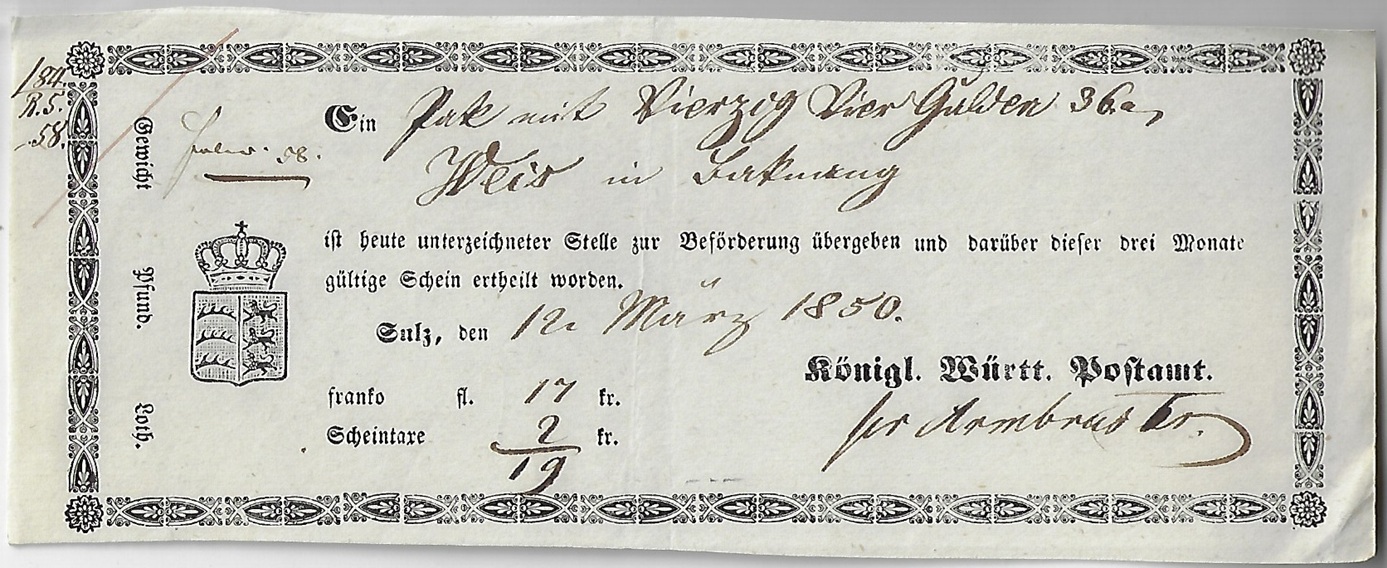 184.
R. 5.
58.
Gewicht Pfund. Loth.
58.
Ein Pak mit Vierzig Vier Gulden 36
Weis in Baknang
ist heute unterzeichneter Stelle zur Beförderung übergeben und darüber dieser drei Monate
gültige Schein ertheilt worden.
Sulz, den 12. März 1850.
Königl. Württ. Postamt.
franko fl. 17 kr.
Scheintaxe 2 kr.
19
Armbruster.